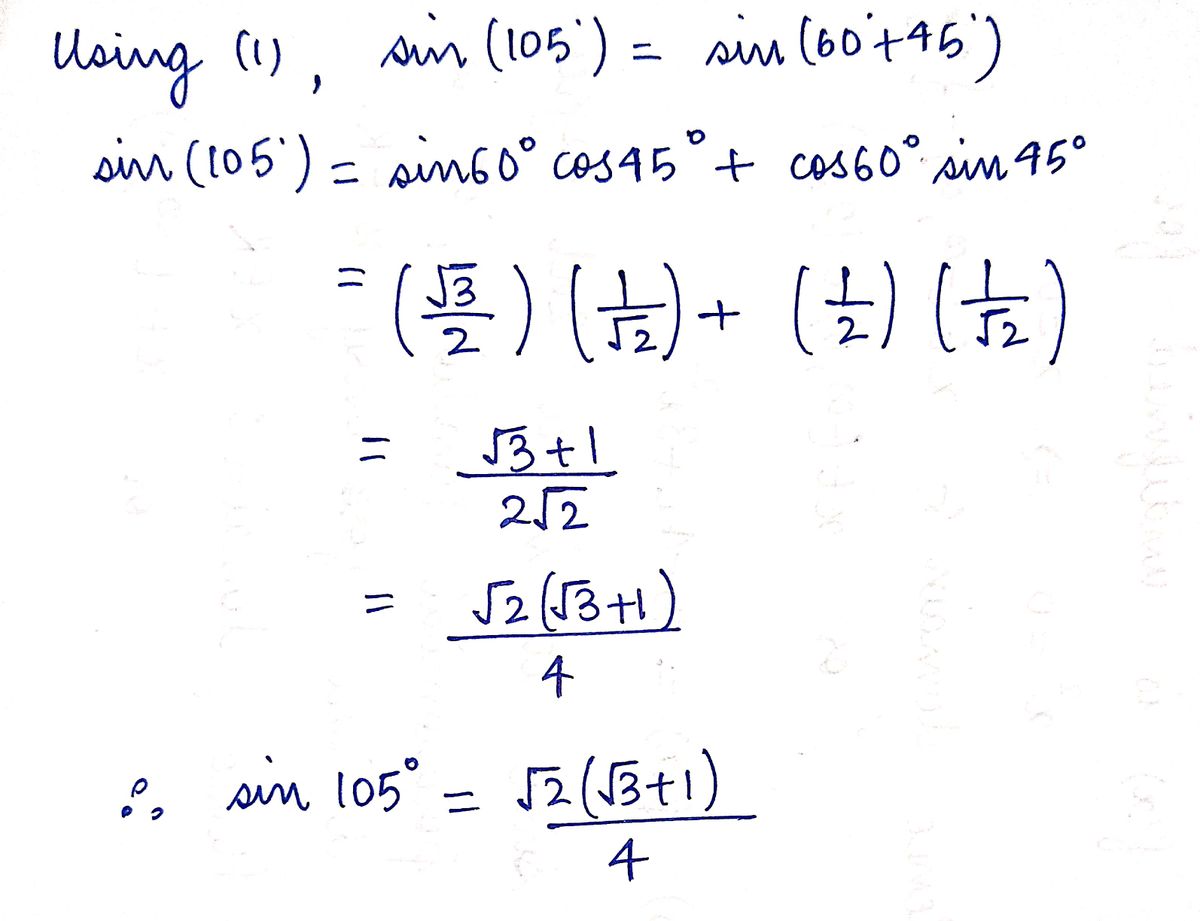 Using (1), sin (105°) = sin (60°+45°)
sin (105°) = sin60° cos45° + cos60° sin 45°
= (√3/2) (1/√2) + (1/2) (1/√2)
= √3+1 / 2√2
= √2(√3+1) / 4
∴ sin 105° = √2(√3+1) / 4